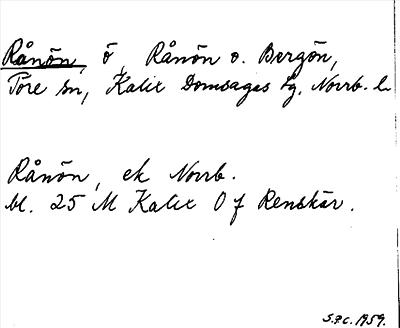 Rånön, ö, Rånön o. Bergön,
Töre sn, Kalix Domsagas tg, Norrb. l.
Rånön, ek Norrb.
bl. 25 M Kalix O f Renskär.
S.P.C. 1959.